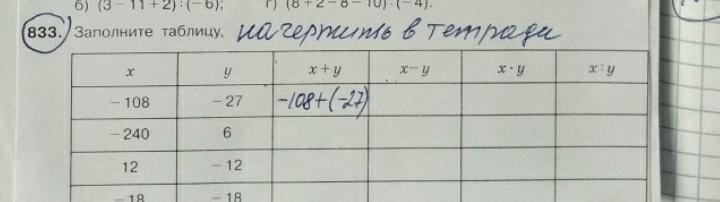 б) (3 − 11 + 2) : (− 6); г) (8 + 2 − 8 − 10) : (− 4).
833. Заполните таблицу. начертить в тетради
x y x + y x − y x · y x : y
− 108 − 27 −108+(−27)
− 240 6
12 − 12
− 18 − 18